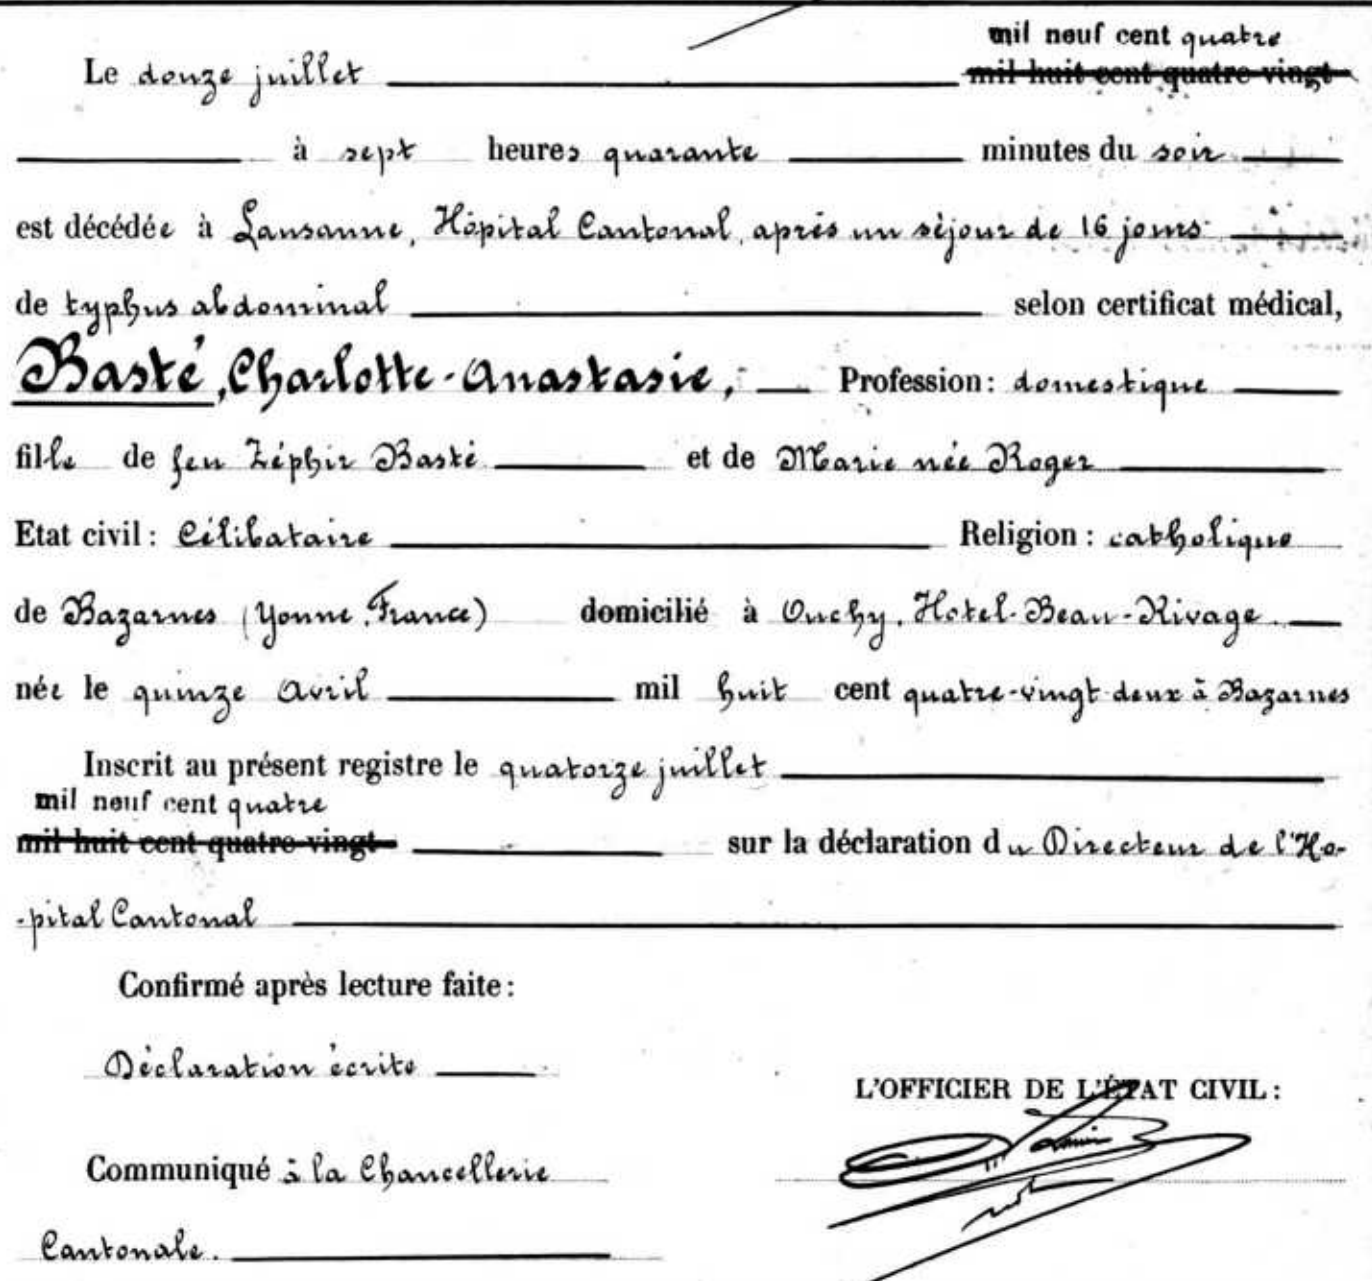 mil neuf cent quatre
Le douze juillet mil huit cent quatre-vingt
à sept heures quarante minutes du soir
est décédée à Lausanne, Hôpital Cantonal, après un séjour de 16 jours
de typhus abdominal selon certificat médical,
Basté, Charlotte-Anastasie, Profession: domestique
fille de feu Zéphir Basté et de Marie née Roger
Etat civil: Célibataire Religion: catholique
de Bazarnes (Yonne, France) domicilié à Ouchy, Hotel-Beau-Rivage.
née le quinze Avril mil huit cent quatre-vingt deux à Bazarnes
Inscrit au présent registre le quatorze juillet
mil neuf cent quatre
mil huit cent quatre-vingt sur la déclaration du Directeur de l'Ho-
-pital Cantonal
Confirmé après lecture faite:
Déclaration écrite
L'OFFICIER DE L'ÉTAT CIVIL:
Communiqué à la Chancellerie
Cantonale.